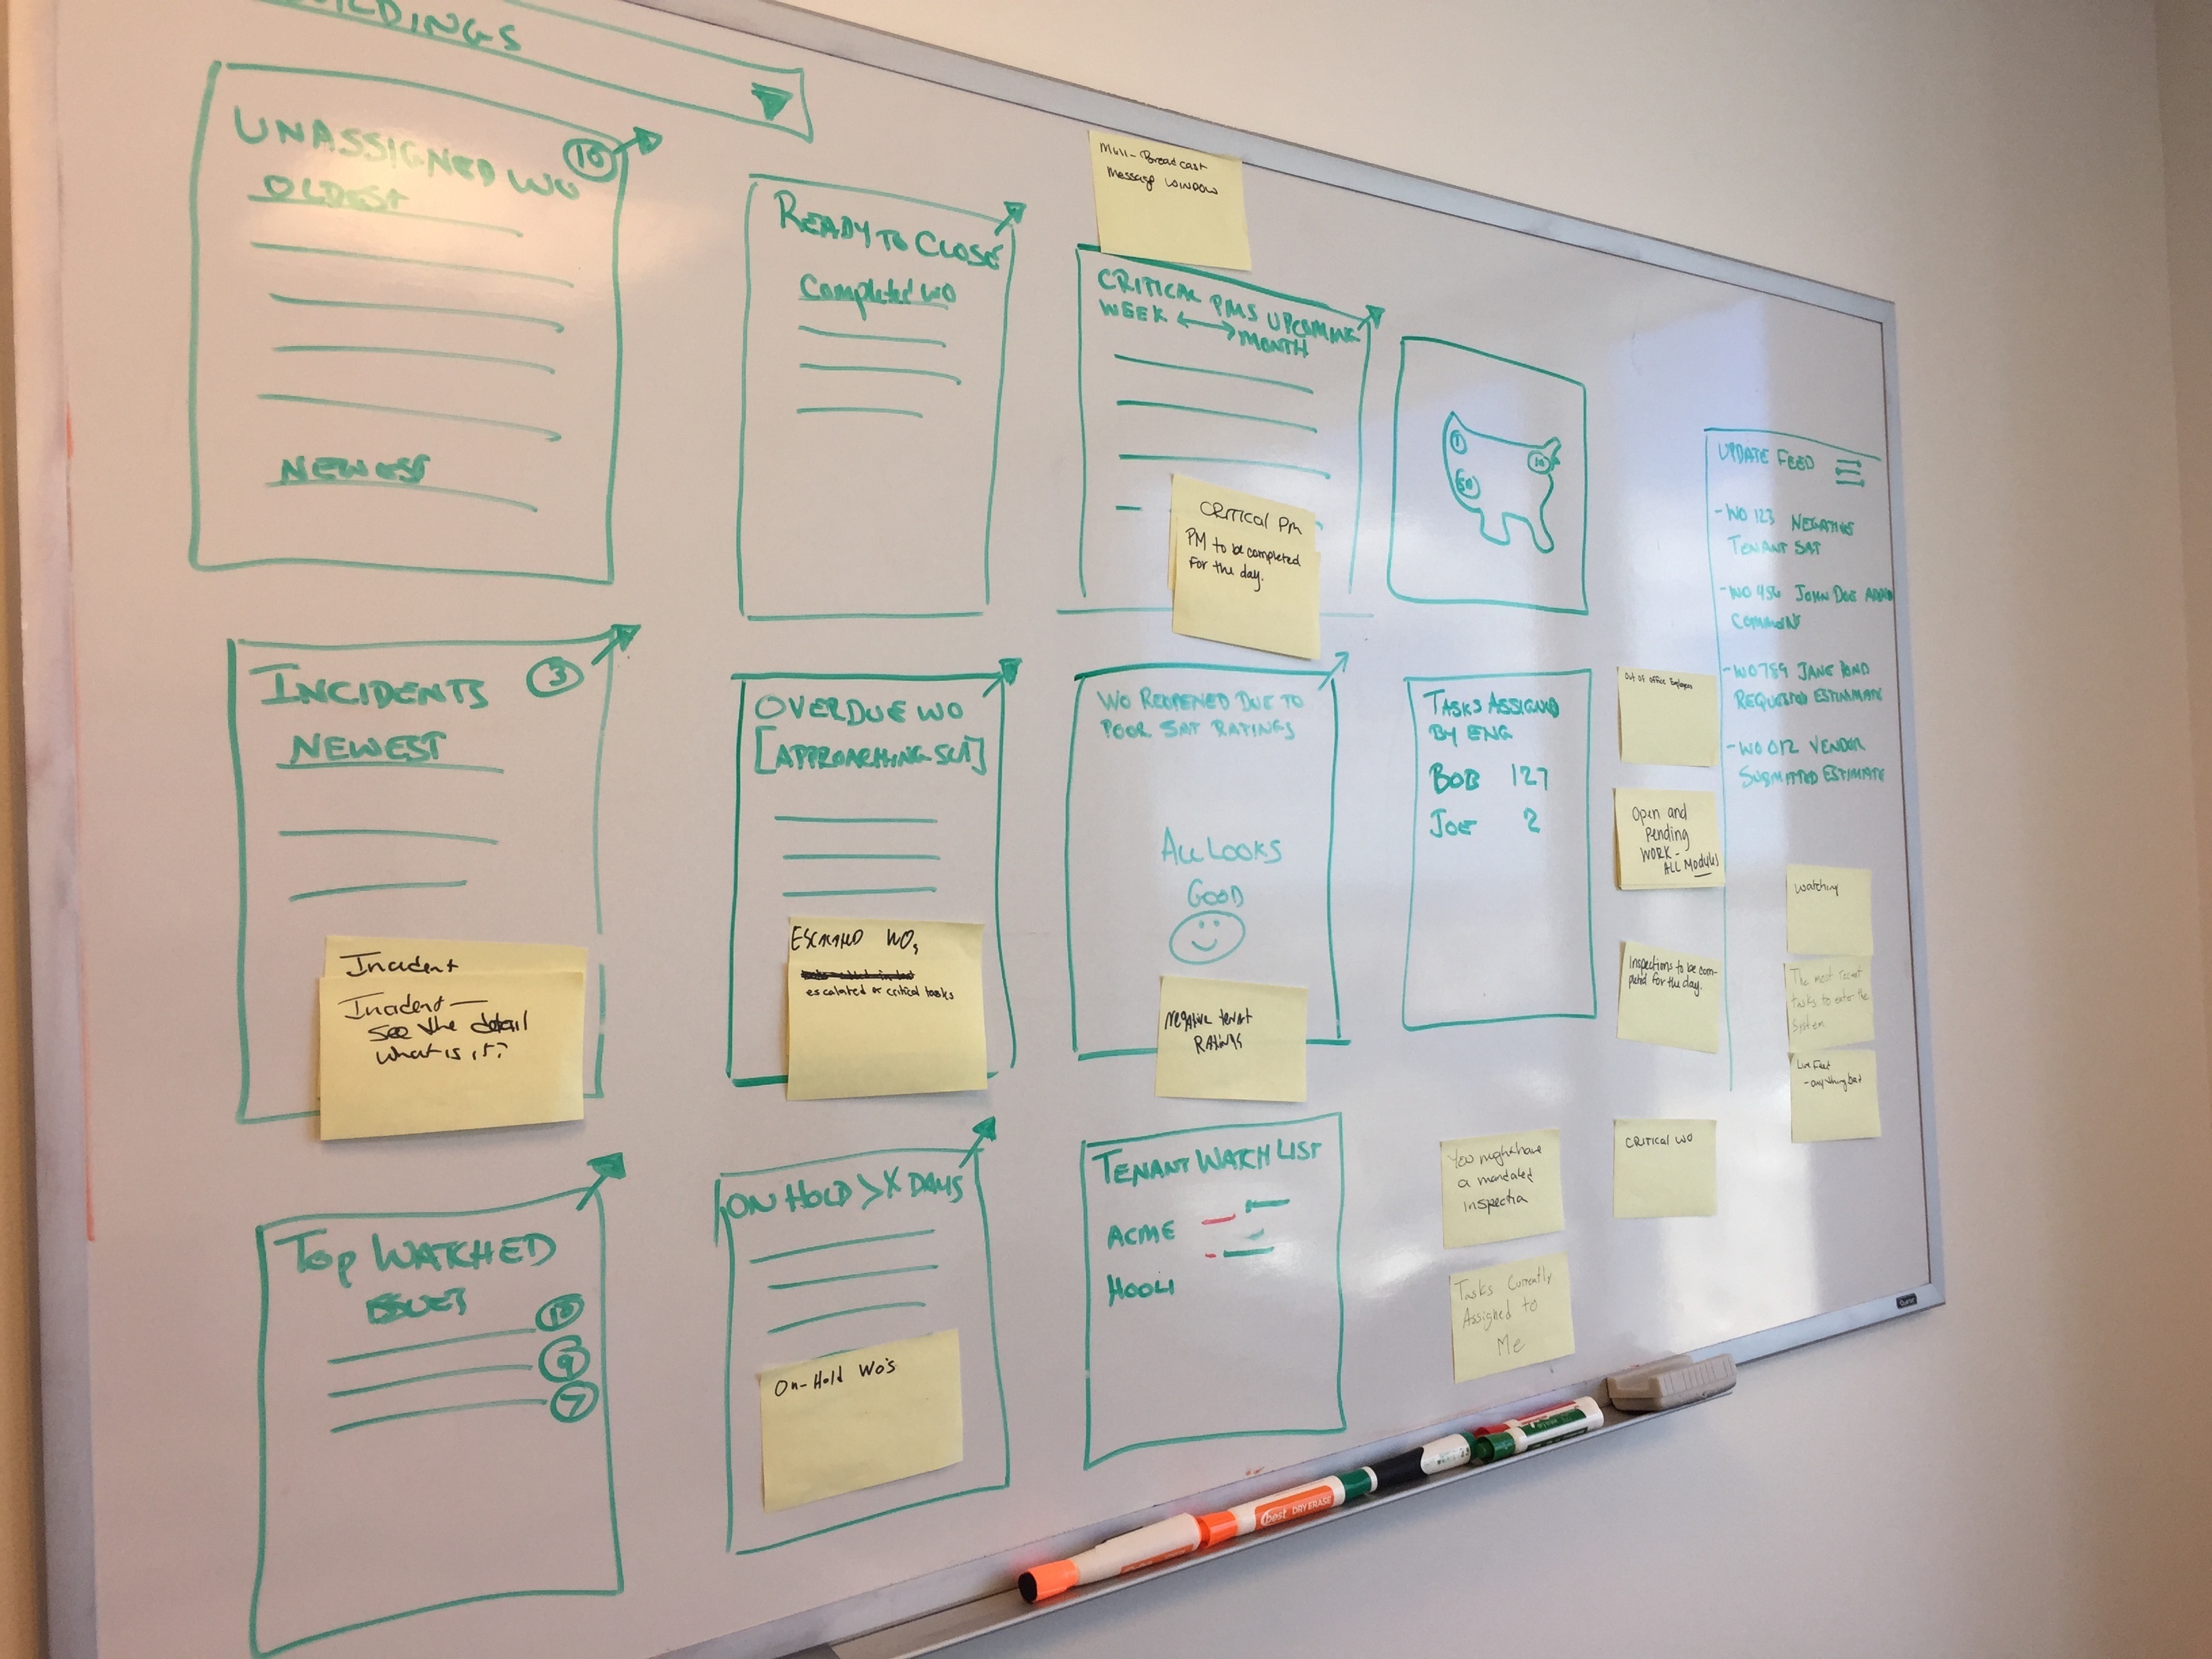 BUILDINGS
UNASSIGNED WO
10
OLDEST
NEWEST
READY TO CLOSE
Completed WO
Message WINDOW
CRITICAL PMS UPCOMING
WEEK ↔ MONTH
CRITICAL PM
PM to be completed
for the day.
1
10
50
UPDATE FEED
- WO 123 NEGATIVE
TENANT SAT
- WO 456 JOHN DOE ADDED
COMMENT
- WO 789 JANE BOND
REQUESTED ESTIMATE
- WO 012 VENDOR
SUBMITTED ESTIMATE
INCIDENTS
3
NEWEST
Incident
Incident —
See the detail
What is it?
OVERDUE WO
[APPROACHING SLA]
ESCALATED WO's
escalated or critical tasks
WO REOPENED DUE TO
POOR SAT RATINGS
ALL LOOKS
GOOD
Negative tenant
RATINGS
TASKS ASSIGNED
BY ENG
BOB 127
JOE 2
Out of office Employees
Open and
Pending
WORK -
ALL Modules
Inspections to be com-
pleted for the day.
Watching
The most recent
tasks to enter the
System
Live Feed
- anything bad
TOP WATCHED
ISSUES
10
9
7
ON HOLD > X DAYS
On-Hold Wo's
TENANT WATCH LIST
ACME
HOOLI
You might have
a mandated
inspection
CRITICAL WO
Tasks Currently
Assigned to
Me
best DRY ERASE